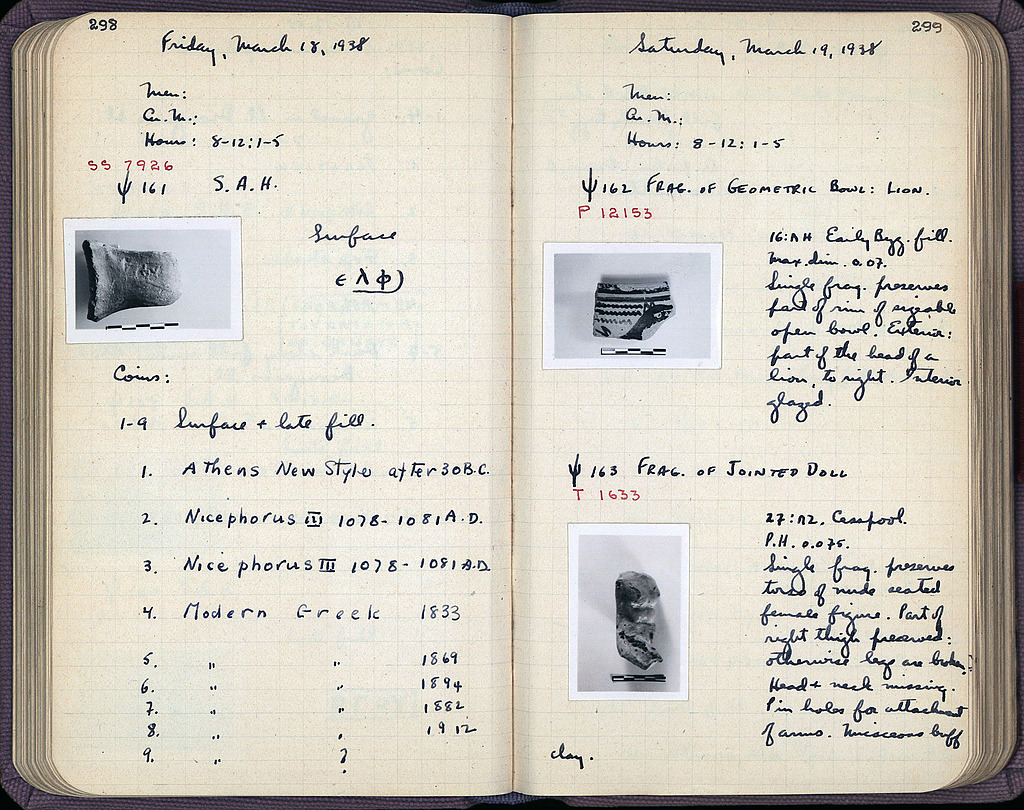 298
Friday, March 18, 1938
Men:
Ar. M.:
Hours: 8-12:1-5
SS 7926
ψ 161 S.A.H.
Surface
ϵλφ)
Coins:
1-9 Surface + late fill.
1. Athens New Style after 30 B.C.
2. Nicephorus III 1078-1081 A.D.
3. Nicephorus III 1078-1081 A.D.
4. Modern Greek 1833
5. " " 1869
6. " " 1894
7. " " 1882
8. " " 1912
9. " ?
299
Saturday, March 19, 1938
Men:
Ar. M.:
Hours: 8-12: 1-5
ψ 162 Frag. of Geometric Bowl: Lion.
P 12153
Early Byz. fill.
Max. dim. 0.07.
Single frag. preserves
part of rim of sizeable
open bowl. Exterior:
part of the head of a
lion, to right. Interior
glazed.
ψ 163 Frag. of Jointed Doll
T 1633
Cesspool.
P.H. 0.075.
Single frag. preserves
torso of nude seated
female figure. Part of
right thigh preserved:
otherwise legs are broken.
Head + neck missing.
Pin holes for attachment
of arms. Micaceous buff
clay.